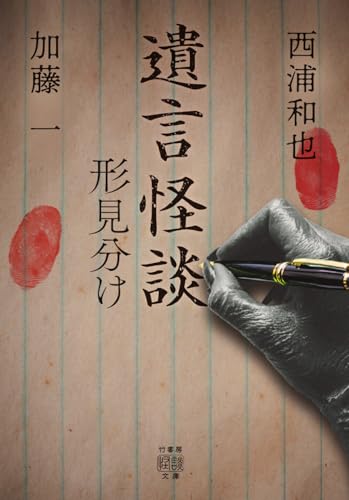 西浦和也
遺言怪談
形見分け
加藤 一
竹書房
怪談
文庫